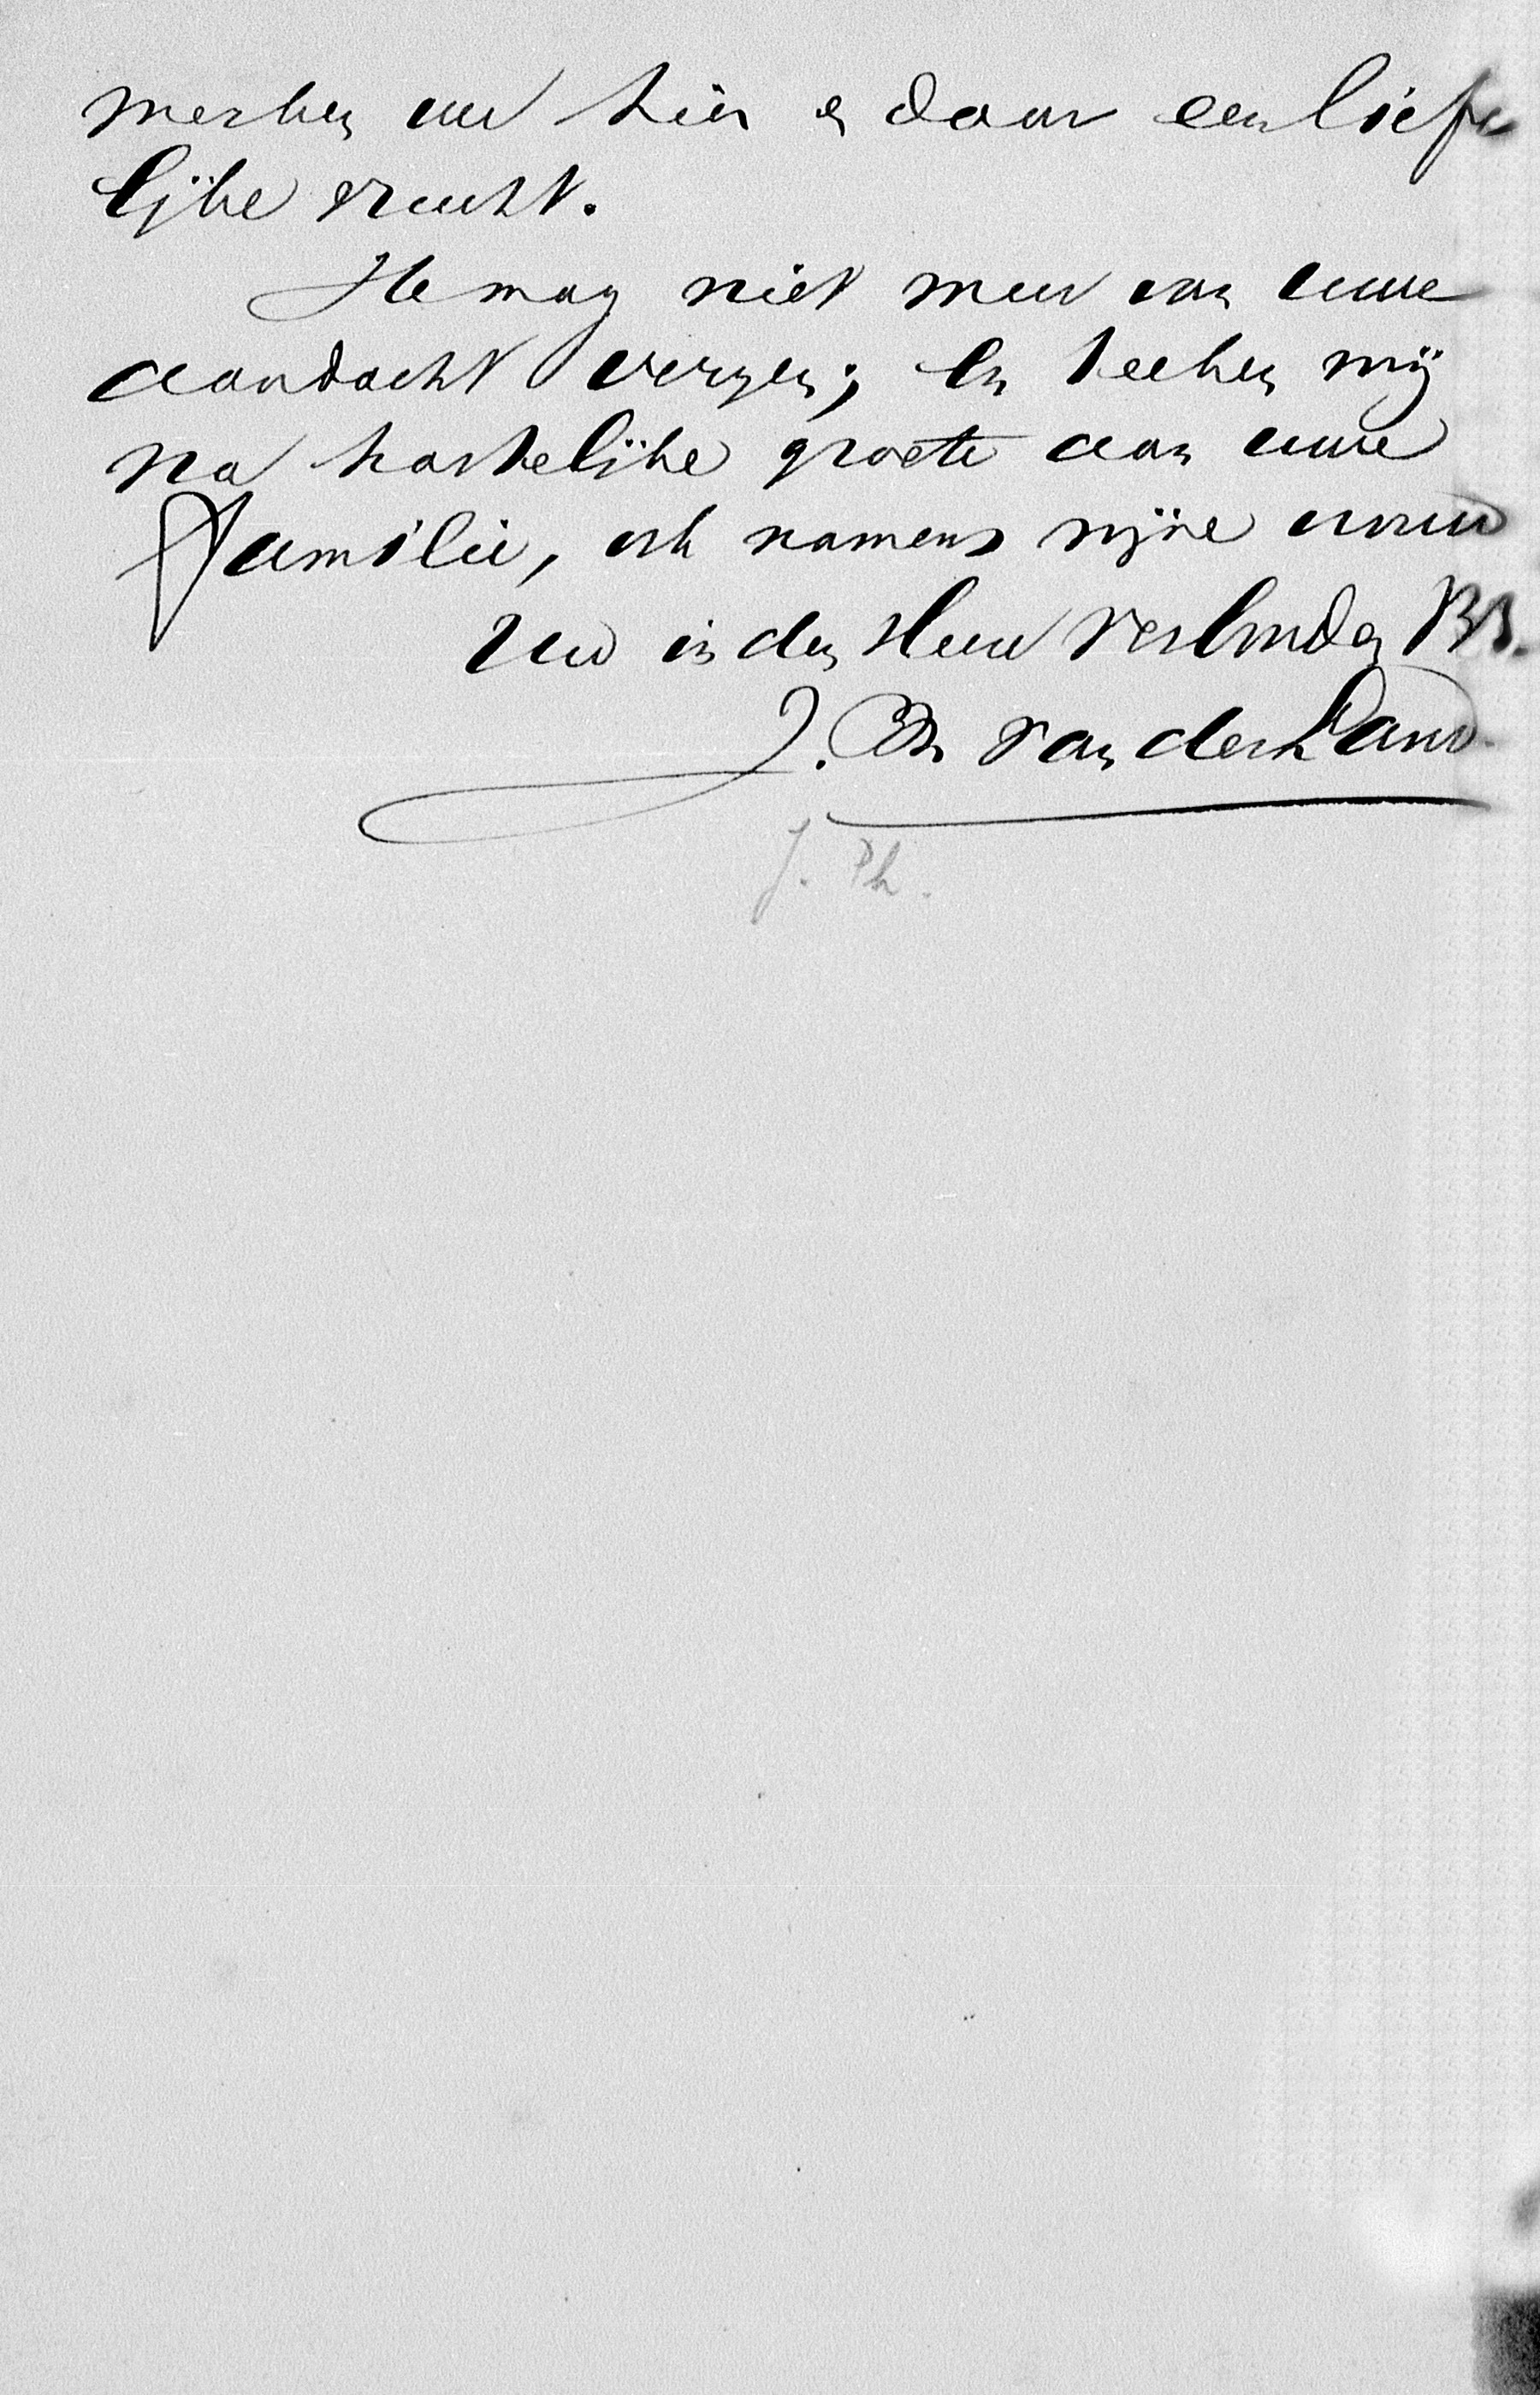 merken we hier en daar een liefe
lijke vrucht.
Ik mag niet meer van uwe
aandacht vergen; en teeken mij
na hartelijke groete aan uwe
Familie, ook namens mijne vrouw
Uw in den Heer verbonden Br.
J. Ph van der Land
J. Ph.